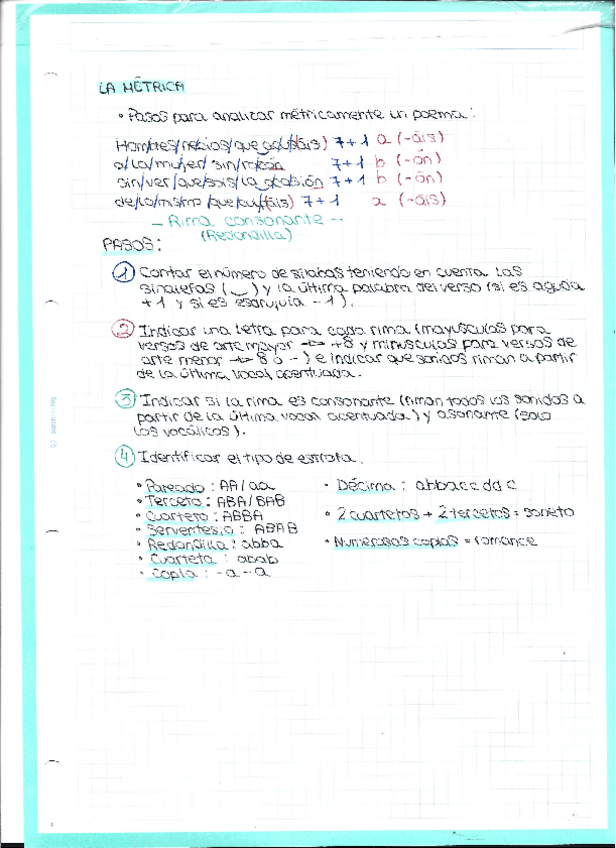 LA MÉTRICA
• Pasos para analizar métricamente un poema:
Hom/bres/necios/que acu/sáis) 7+1 a (-áis)
a/la/mujer/sin/razón 7+1 b (-ón)
sin/ver/que/sois/la ocasión 7+1 b (-ón)
de/lo/mismo/que/cul/páis) 7+1 a (-áis)
- Rima consonante --
(Redondilla)
PASOS:
1 Contar el número de sílabas teniendo en cuenta las
sinalefas (‿) y la última palabra del verso (si es aguda
+1 y si es esdrújula -1).
2 Indicar una letra para cada rima (mayúsculas para
versos de arte mayor => +8 y minúsculas para versos de
arte menor => 8 o -) e indicar que sonidos riman a partir
de la última vocal acentuada.
3 Indicar si la rima es consonante (riman todos los sonidos a
partir de la última vocal acentuada) y asonante (solo
los vocálicos).
4 Identificar el tipo de estrofa.
• Pareado: AA/aa
• Terceto: ABA/BAB
• Cuarteto: ABBA
• Serventesio: ABAB
• Redondilla: abba
• Cuarteta: abab
• Copla: -a-a
• Décima: abbacc dd c
• 2 cuartetos + 2 tercetos = soneto
• Numerosas coplas = romance